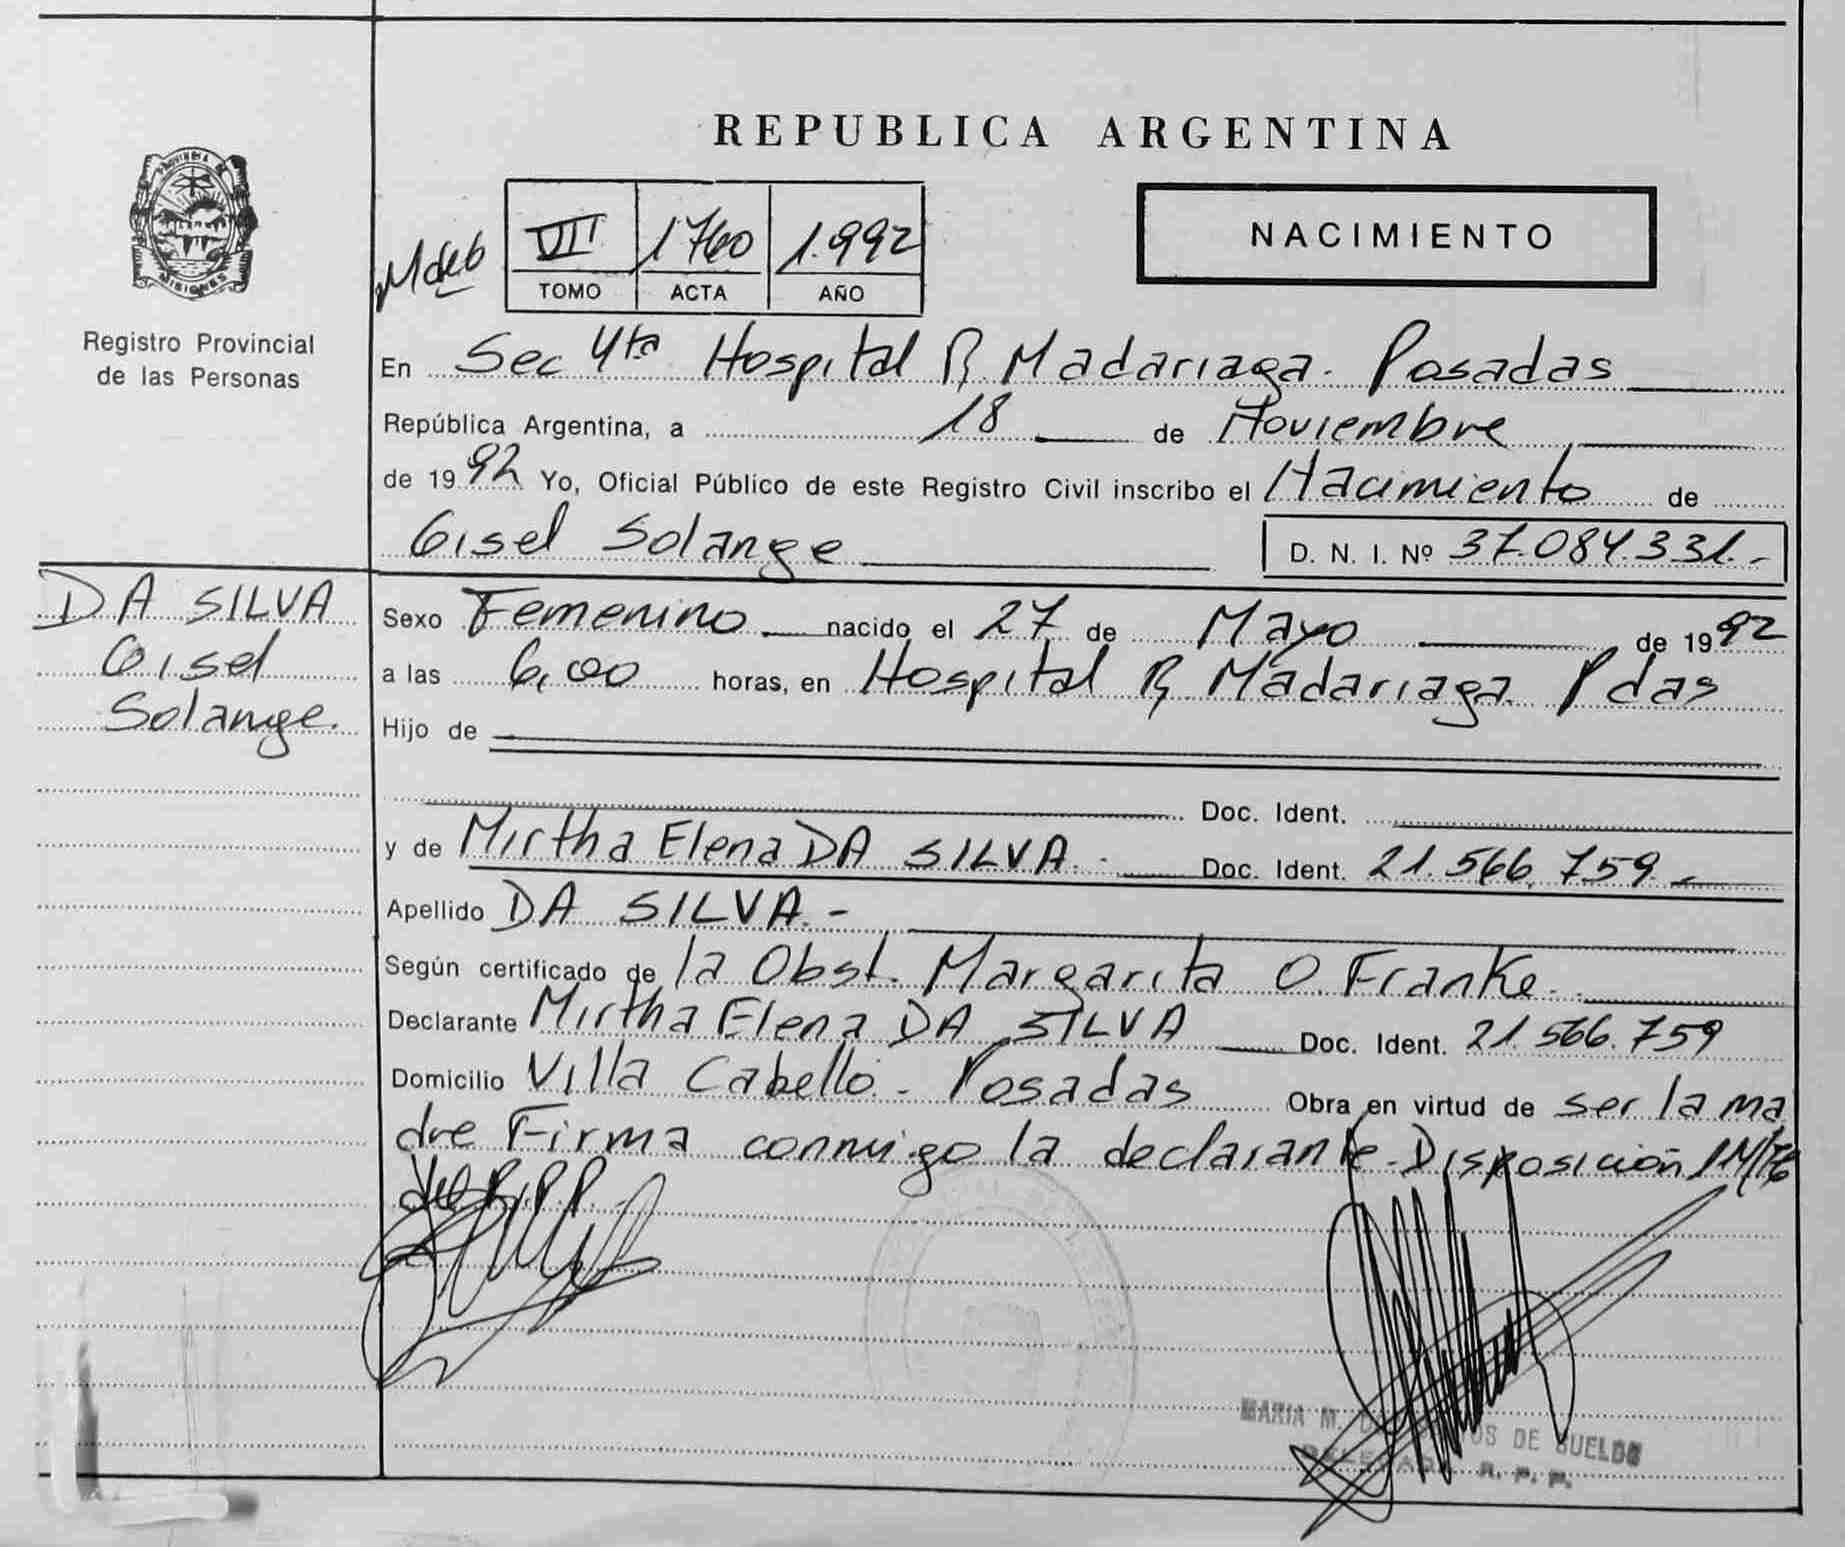 REPUBLICA ARGENTINA
PROVINCIA DE
MISIONES
Registro Provincial
de las Personas
VII 1760 1.992
TOMO ACTA AÑO
NACIMIENTO
En Sec 4ta Hospital R. Madariaga. Posadas
República Argentina, a 18 de Noviembre
de 1992 Yo, Oficial Público de este Registro Civil inscribo el Nacimiento de
Gisel Solange D. N. I. Nº 37.084.331.-
DA SILVA
Gisel
Solange.
Sexo Femenino nacido el 27 de Mayo de 1992
a las 6,00 horas, en Hospital R. Madariaga. Pdas
Hijo de
Doc. Ident.
y de Mirtha Elena DA SILVA.- Doc. Ident. 21.566.759.-
Apellido DA SILVA.-
Según certificado de la Obst. Margarita O. Franke.
Declarante Mirtha Elena DA SILVA Doc. Ident. 21.566.759
Domicilio Villa Cabello - Posadas Obra en virtud de ser la ma
dre Firma conmigo la declarante. Disposición
del R.P.P.
MARIA M. DE BUELDO
DELEGADA R. P. P.